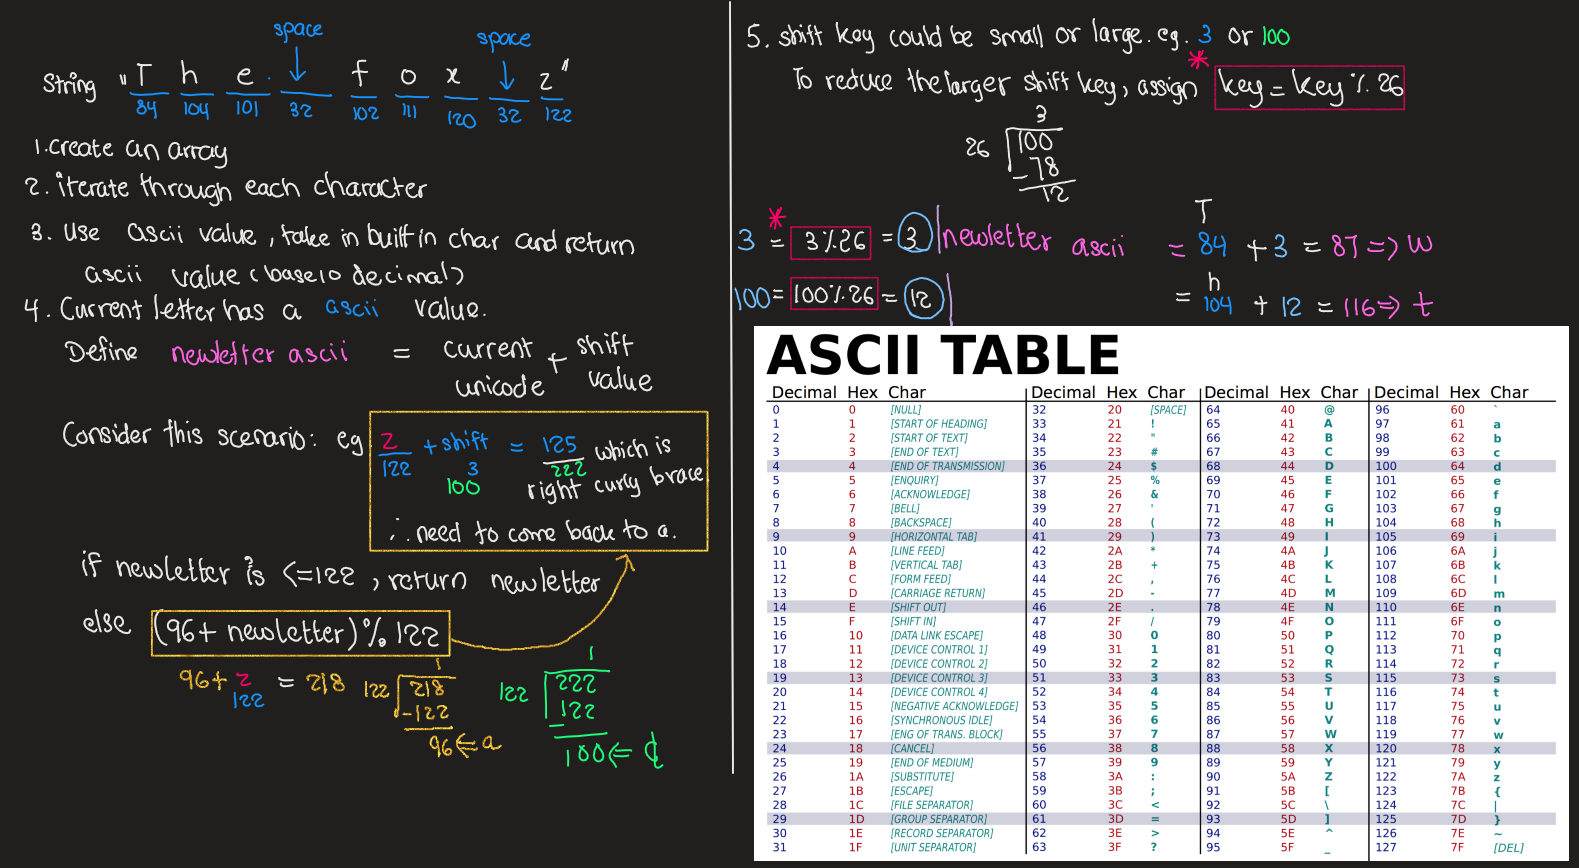 space
space
String "T h e . f o x z"
84 104 101 32 102 111 120 32 122
1.create an array
2. iterate through each character
3. Use ascii value, take in built in char and return
ascii value (base10 decimal)
4. Current letter has a ascii value.
Define newletter ascii = current unicode + shift value
Consider this scenario: eg
z + shift = 125 which is
122 3 222
100 right curly brace
∴ need to come back to a.
if newletter is <=122, return newletter
else (96+ newletter) % 122
96+ z = 218
122
1
122 218
-122
96 <= a
1
122 222
- 122
100 <= d
5. shift key could be small or large. eg. 3 or 100
To reduce the larger shift key, assign * key = key % 26
3
26 100
-78
12
*
3 = 3%26 = 3 | newletter ascii = 84 + 3 = 87 => W
T
h
100 = 100%26 = 12 | = 104 + 12 = 116 => t
ASCII TABLE
Decimal Hex Char Decimal Hex Char Decimal Hex Char Decimal Hex Char
0 0 [NULL] 32 20 [SPACE] 64 40 @ 96 60 `
1 1 [START OF HEADING] 33 21 ! 65 41 A 97 61 a
2 2 [START OF TEXT] 34 22 " 66 42 B 98 62 b
3 3 [END OF TEXT] 35 23 # 67 43 C 99 63 c
4 4 [END OF TRANSMISSION] 36 24 $ 68 44 D 100 64 d
5 5 [ENQUIRY] 37 25 % 69 45 E 101 65 e
6 6 [ACKNOWLEDGE] 38 26 & 70 46 F 102 66 f
7 7 [BELL] 39 27 ' 71 47 G 103 67 g
8 8 [BACKSPACE] 40 28 ( 72 48 H 104 68 h
9 9 [HORIZONTAL TAB] 41 29 ) 73 49 I 105 69 i
10 A [LINE FEED] 42 2A * 74 4A J 106 6A j
11 B [VERTICAL TAB] 43 2B + 75 4B K 107 6B k
12 C [FORM FEED] 44 2C , 76 4C L 108 6C l
13 D [CARRIAGE RETURN] 45 2D - 77 4D M 109 6D m
14 E [SHIFT OUT] 46 2E . 78 4E N 110 6E n
15 F [SHIFT IN] 47 2F / 79 4F O 111 6F o
16 10 [DATA LINK ESCAPE] 48 30 0 80 50 P 112 70 p
17 11 [DEVICE CONTROL 1] 49 31 1 81 51 Q 113 71 q
18 12 [DEVICE CONTROL 2] 50 32 2 82 52 R 114 72 r
19 13 [DEVICE CONTROL 3] 51 33 3 83 53 S 115 73 s
20 14 [DEVICE CONTROL 4] 52 34 4 84 54 T 116 74 t
21 15 [NEGATIVE ACKNOWLEDGE] 53 35 5 85 55 U 117 75 u
22 16 [SYNCHRONOUS IDLE] 54 36 6 86 56 V 118 76 v
23 17 [ENG OF TRANS. BLOCK] 55 37 7 87 57 W 119 77 w
24 18 [CANCEL] 56 38 8 88 58 X 120 78 x
25 19 [END OF MEDIUM] 57 39 9 89 59 Y 121 79 y
26 1A [SUBSTITUTE] 58 3A : 90 5A Z 122 7A z
27 1B [ESCAPE] 59 3B ; 91 5B [ 123 7B {
28 1C [FILE SEPARATOR] 60 3C < 92 5C \ 124 7C |
29 1D [GROUP SEPARATOR] 61 3D = 93 5D ] 125 7D }
30 1E [RECORD SEPARATOR] 62 3E > 94 5E ^ 126 7E ~
31 1F [UNIT SEPARATOR] 63 3F ? 95 5F _ 127 7F [DEL]